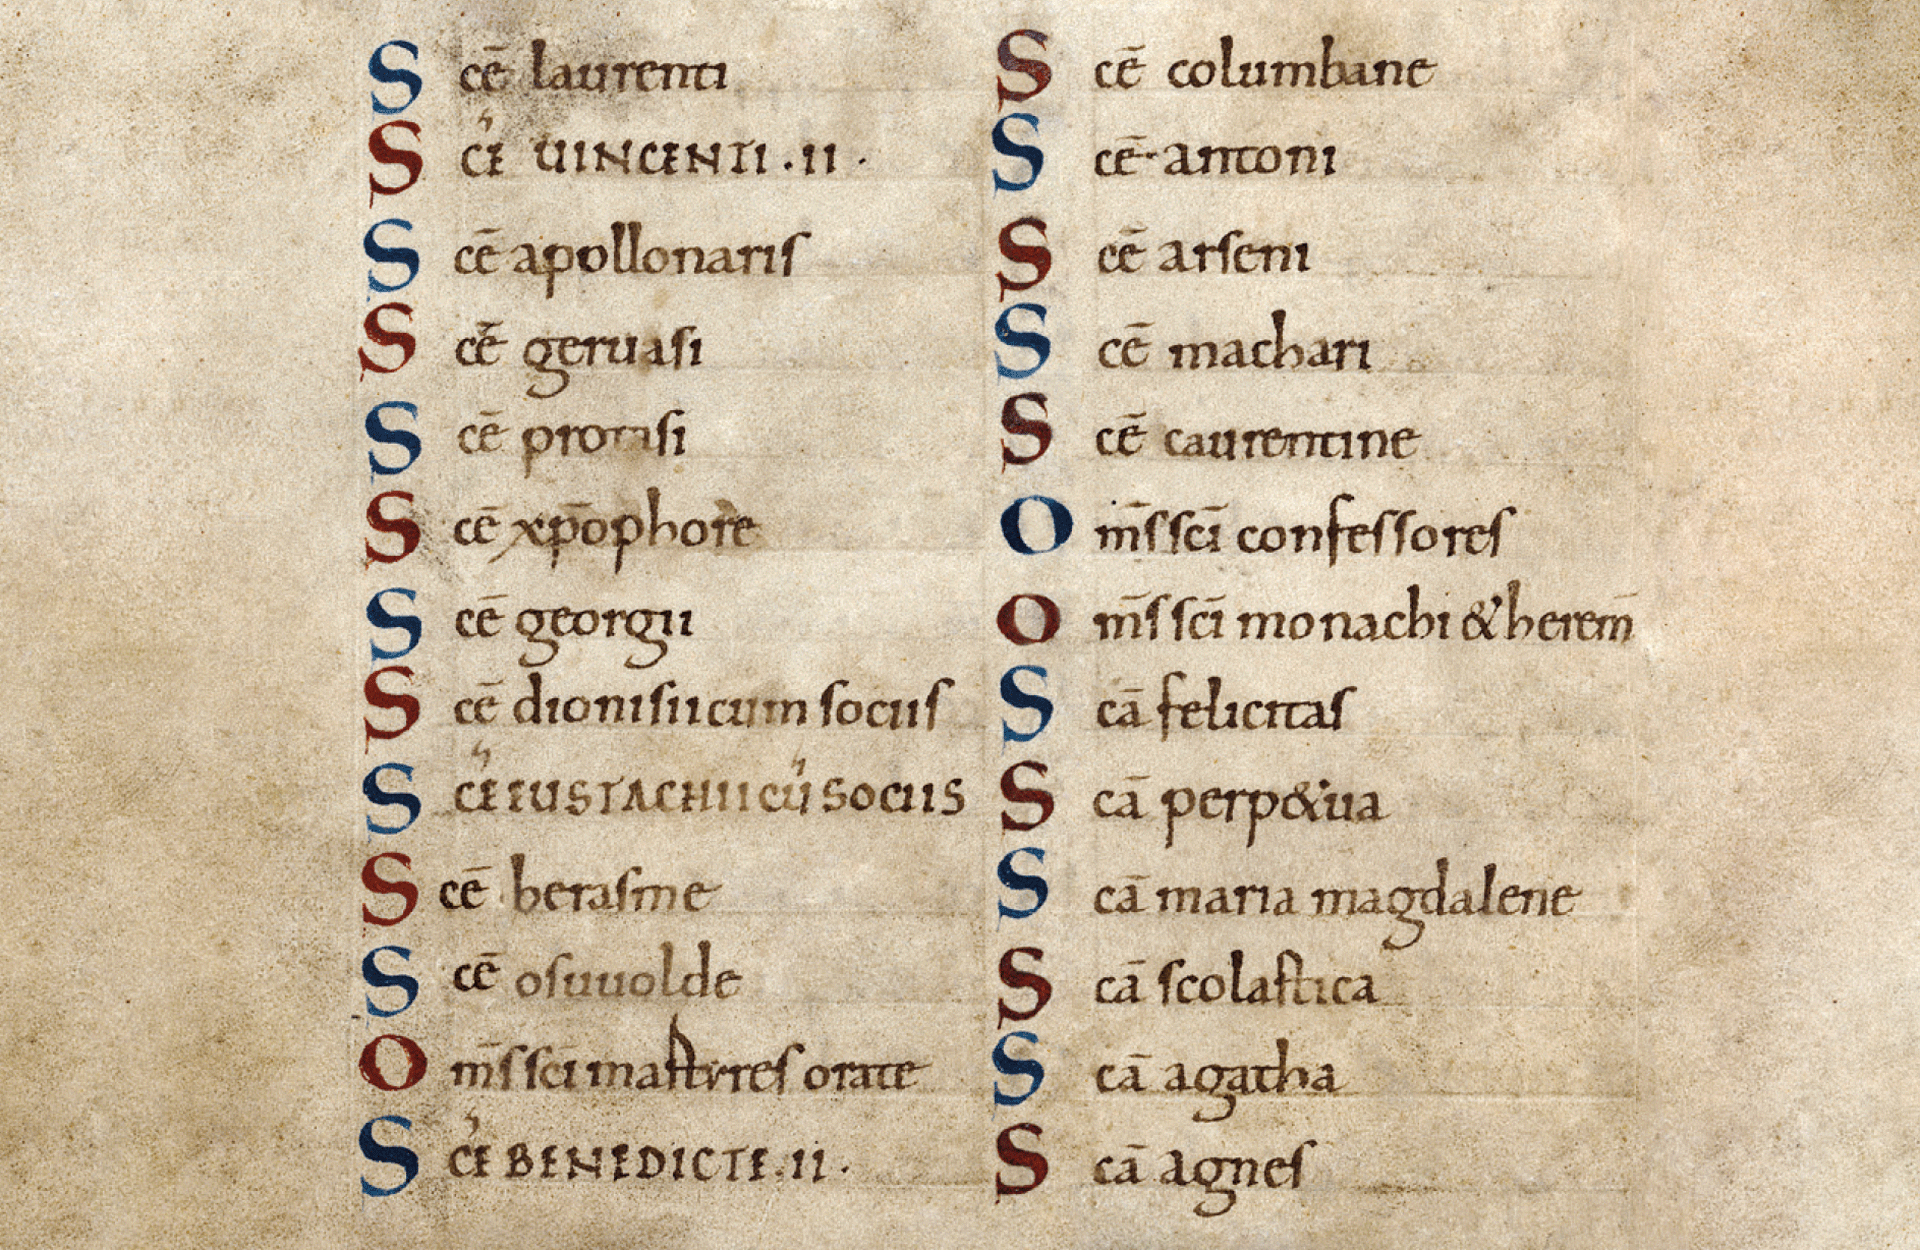 Scē laurenti
Scē UINCENTI · II ·
Scē apollonariſ
Scē geruaſi
Scē protaſi
Scē xp̄ophore
Scē georgii
Scē dioniſii cum ſociiſ
Scē EUSTACHII CŪ SOCIIS
Scē beraſme
Scē oſuuolde
Om̄ſ ſcī maſtyreſ orate
Scē BENEDICTE · II ·
Scē columbane
Scē · antoni
Scē arſeni
Scē machari
Scē caurentine
Om̄ſ ſcī confeſſoreſ
Om̄ſ ſcī monachi & herem̄
Scā felicitaſ
Scā perp&ua
Scā maria magdalene
Scā ſcolaſtica
Scā agatha
Scā agneſ